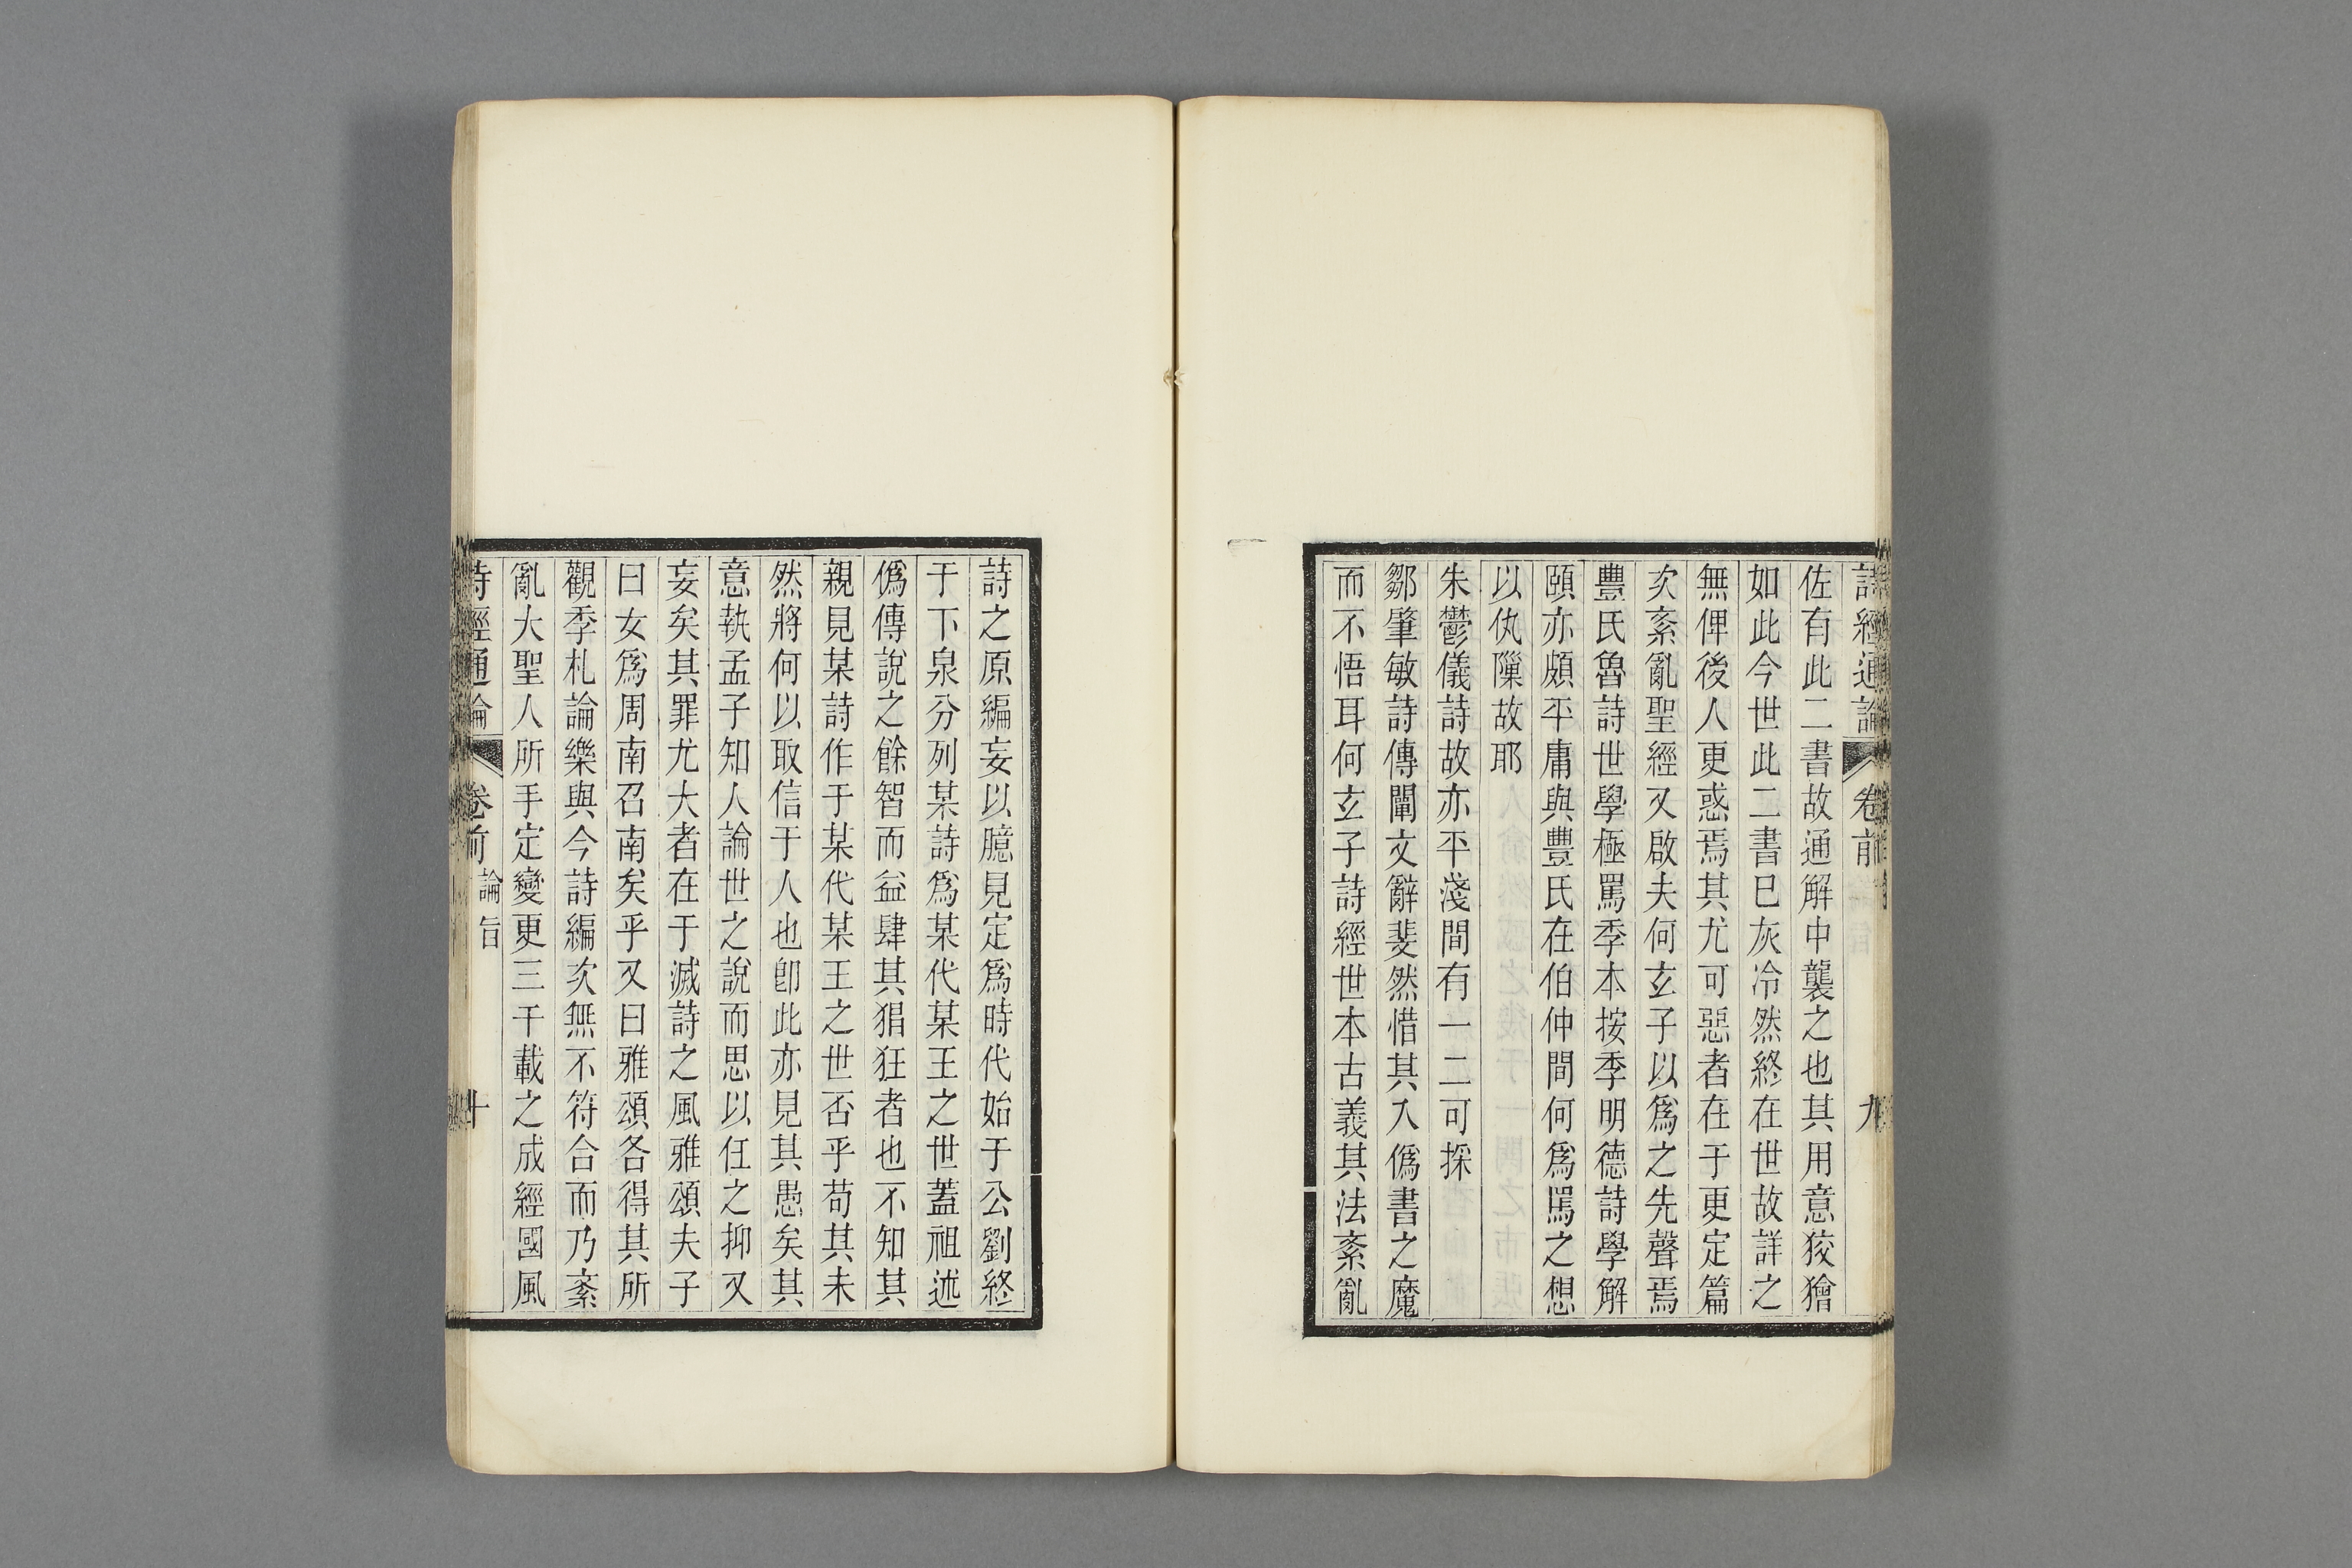 詩經通論 卷前 九
佐有此二書故通解中襲之也其用意狡獪
如此今世此二書巳灰冷然終在世故詳之
無俾後人更惑焉其尤可惡者在于更定篇
次紊亂聖經又啟夫何玄子以爲之先聲焉
豐氏魯詩世學極罵季本按季明德詩學解
頤亦頗平庸與豐氏在伯仲間何爲罵之想
以仇隟故耶
朱鬱儀詩故亦平淺間有一二可採
鄒肇敏詩傳闡文辭斐然惜其入僞書之魔
而不悟耳何玄子詩經世本古義其法紊亂
詩之原編妄以臆見定爲時代始于公劉終
于下泉分列某詩爲某代某王之世蓋祖述
僞傳說之餘智而益肆其猖狂者也不知其
親見某詩作于某代某王之世否乎苟其未
然將何以取信于人也卽此亦見其愚矣其
意執孟子知人論世之說而思以任之抑又
妄矣其罪尤大者在于滅詩之風雅頌夫子
曰女爲周南召南矣乎又曰雅頌各得其所
觀季札論樂與今詩編次無不符合而乃紊
亂大聖人所手定變更三千載之成經國風
詩經通論 卷前 論旨 十